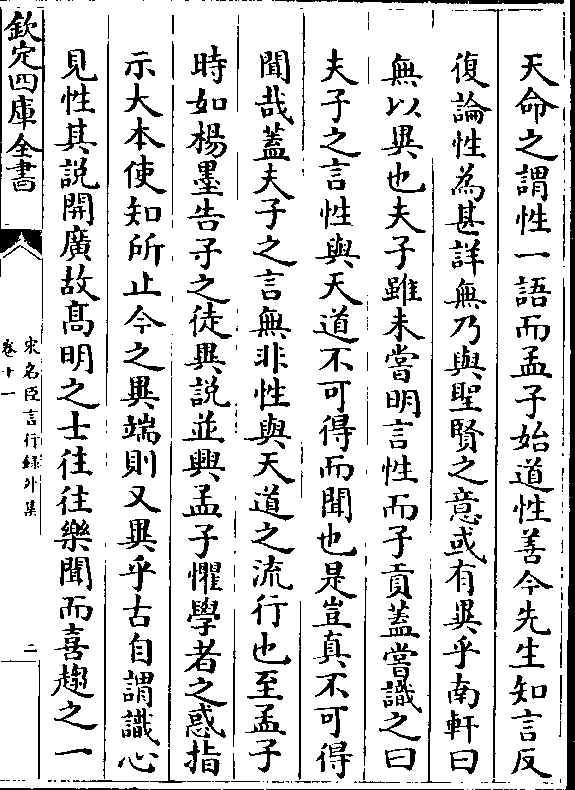 天命之謂性一語而孟子始道性善今先生知言反
復論性為甚詳無乃與聖賢之意或有異乎南軒曰
無以異也夫子雖未嘗明言性而子貢蓋嘗識之曰
夫子之言性與天道不可得而聞也是豈真不可得
聞哉蓋夫子之言無非性與天道之流行也至孟子
時如楊墨告子之徒異說並興孟子懼學者之惑指
示大本使知所止今之異端則又異乎古自謂識心
見性其說開廣故髙明之士往往樂聞而喜趨之一
欽定四庫全書
宋名臣言行錄外集
卷十一
二